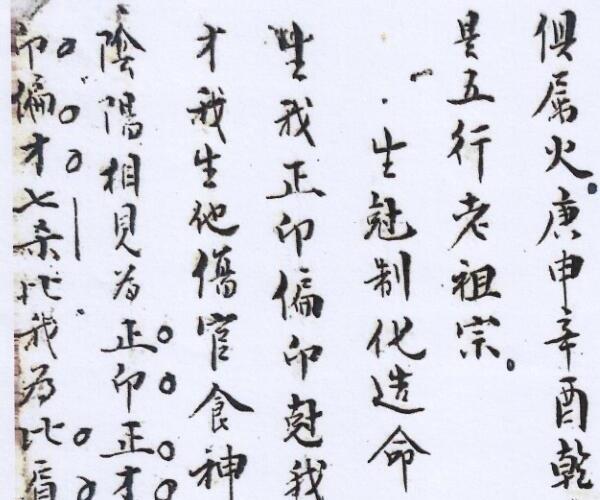 俱属火。庚申辛酉乾
是五行老祖宗。
生尅制化造命
生我正印偏印尅我
才我生他傷官食神
陰陽相見为正印正才
印偏才七杀比我为比肩